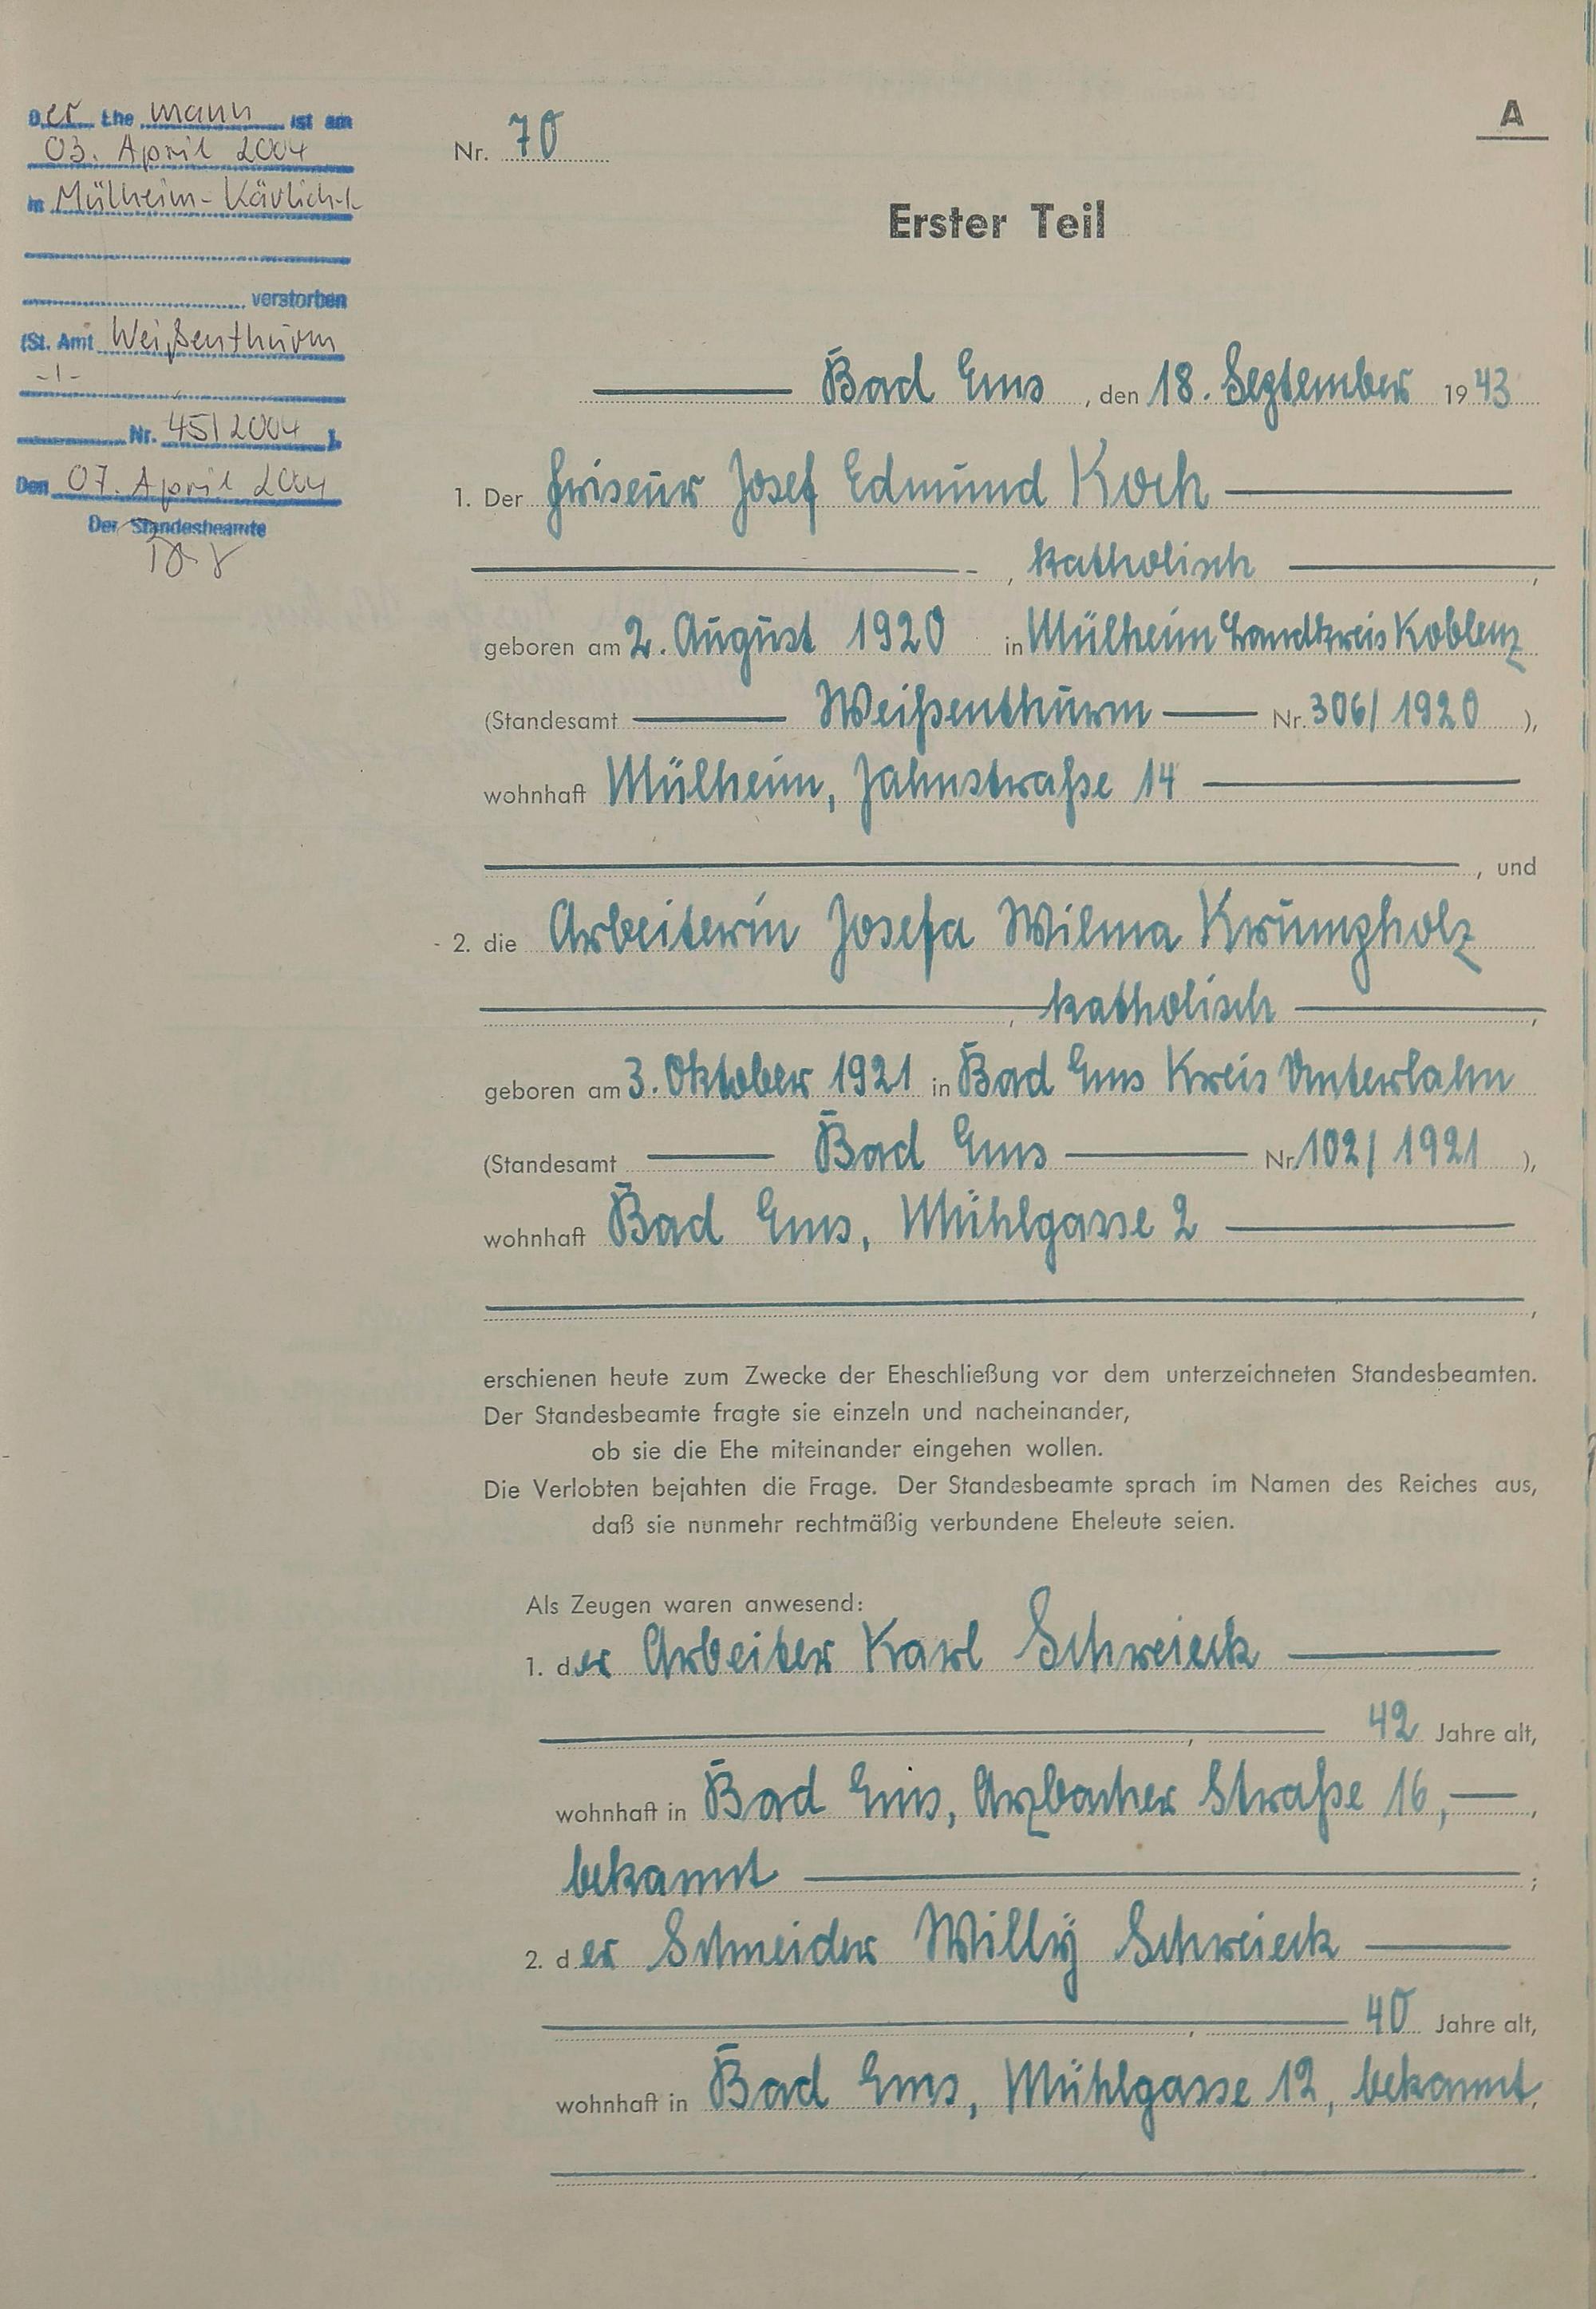 Der Ehe mann ist am
03. April 2004
in Mülheim-Kärlich
verstorben
(St. Amt Weißenthurm
-1-
Nr. 45/2004 ).
Den 07. April 2004
Der Standesbeamte
A
Nr. 70
Erster Teil
Bad Ems, den 18. September 1943
1. Der Friseur Josef Edmund Koch
, katholisch,
geboren am 2. August 1920 in Mülheim Landkreis Koblenz
(Standesamt Weißenthurm Nr. 306/1920 ),
wohnhaft Mülheim, Jahnstraße 14
, und
2. die Arbeiterin Josefa Wilma Krumpholz
, katholisch,
geboren am 3. Oktober 1921 in Bad Ems Kreis Unterlahn
(Standesamt Bad Ems Nr. 102/1921 ),
wohnhaft Bad Ems, Mühlgasse 2
,
erschienen heute zum Zwecke der Eheschließung vor dem unterzeichneten Standesbeamten.
Der Standesbeamte fragte sie einzeln und nacheinander,
ob sie die Ehe miteinander eingehen wollen.
Die Verlobten bejahten die Frage. Der Standesbeamte sprach im Namen des Reiches aus,
daß sie nunmehr rechtmäßig verbundene Eheleute seien.
Als Zeugen waren anwesend:
1. der Arbeiter Karl Schweieck
, 42 Jahre alt,
wohnhaft in Bad Ems, Arzbacher Straße 16,,
bekannt ;
2. der Schneider Willy Schweieck
, 40 Jahre alt,
wohnhaft in Bad Ems, Mühlgasse 12, bekannt,
.